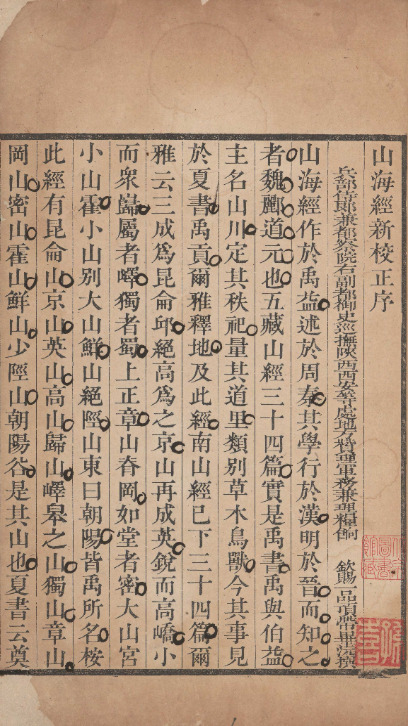 山海經新校正序
兵部侍郎兼都察院右副都御史巡撫陝西西安等處地方贊理軍務兼理糧餉 欽賜一品頂帶畢沅撰
山海經作於禹益述於周秦其學行於漢明於晉而知之
者魏酈道元也五藏山經三十四篇實是禹書禹與伯益
主名山川定其秩祀量其道里類別草木鳥獸今其事見
於夏書禹貢爾雅釋地及此經南山經已下三十四篇爾
雅云三成爲昆侖邱絕高爲之京山再成英銳而高嶠小
而衆巋屬者嶧獨者蜀上正章山脊岡如堂者密大山宮
小山霍小山別大山鮮山絕陘山東曰朝陽皆禹所名桉
此經有昆侖山京山英山高山歸山嶧皋之山獨山章山
岡山密山霍山鮮山少陘山朝陽谷是其山也夏書云奠